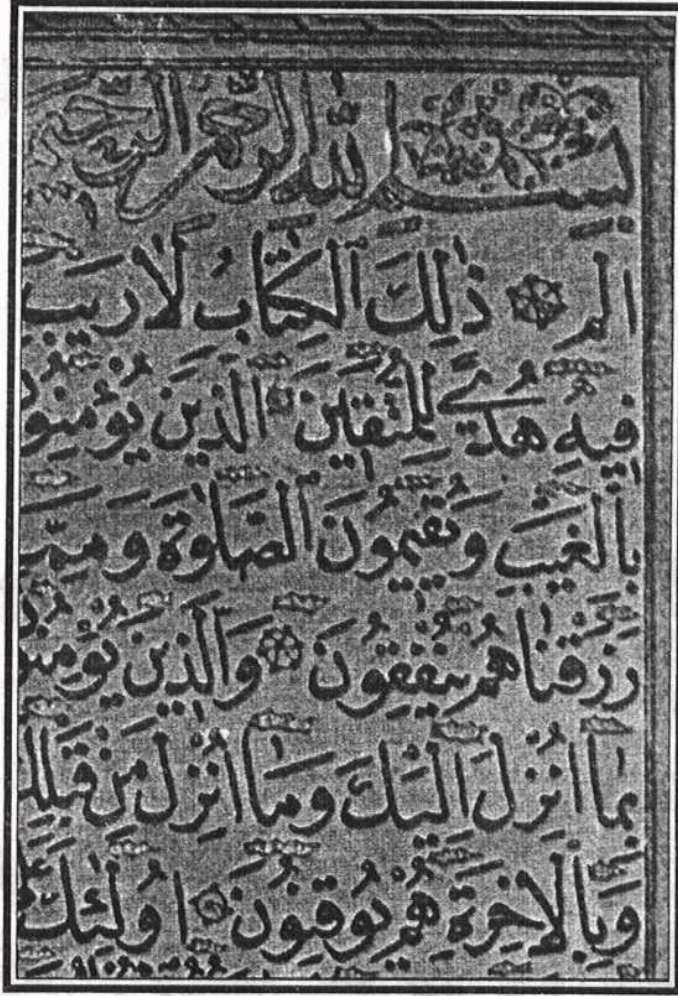 بِسْمِ اللهِ الرَّحْمٰنِ الرَّحِيمِ
الم ذٰلِكَ الْكِتَابُ لَا رَيْبَ
فِيهِ هُدًى لِلْمُتَّقِينَ الَّذِينَ يُؤْمِنُونَ
بِالْغَيْبِ وَيُقِيمُونَ الصَّلٰوةَ وَمِمَّا
رَزَقْنَاهُمْ يُنْفِقُونَ وَالَّذِينَ يُؤْمِنُونَ
بِمَا اُنْزِلَ اِلَيْكَ وَمَا اُنْزِلَ مِنْ قَبْلِكَ
وَبِالْاٰخِرَةِ هُمْ يُوقِنُونَ اُولٰئِكَ